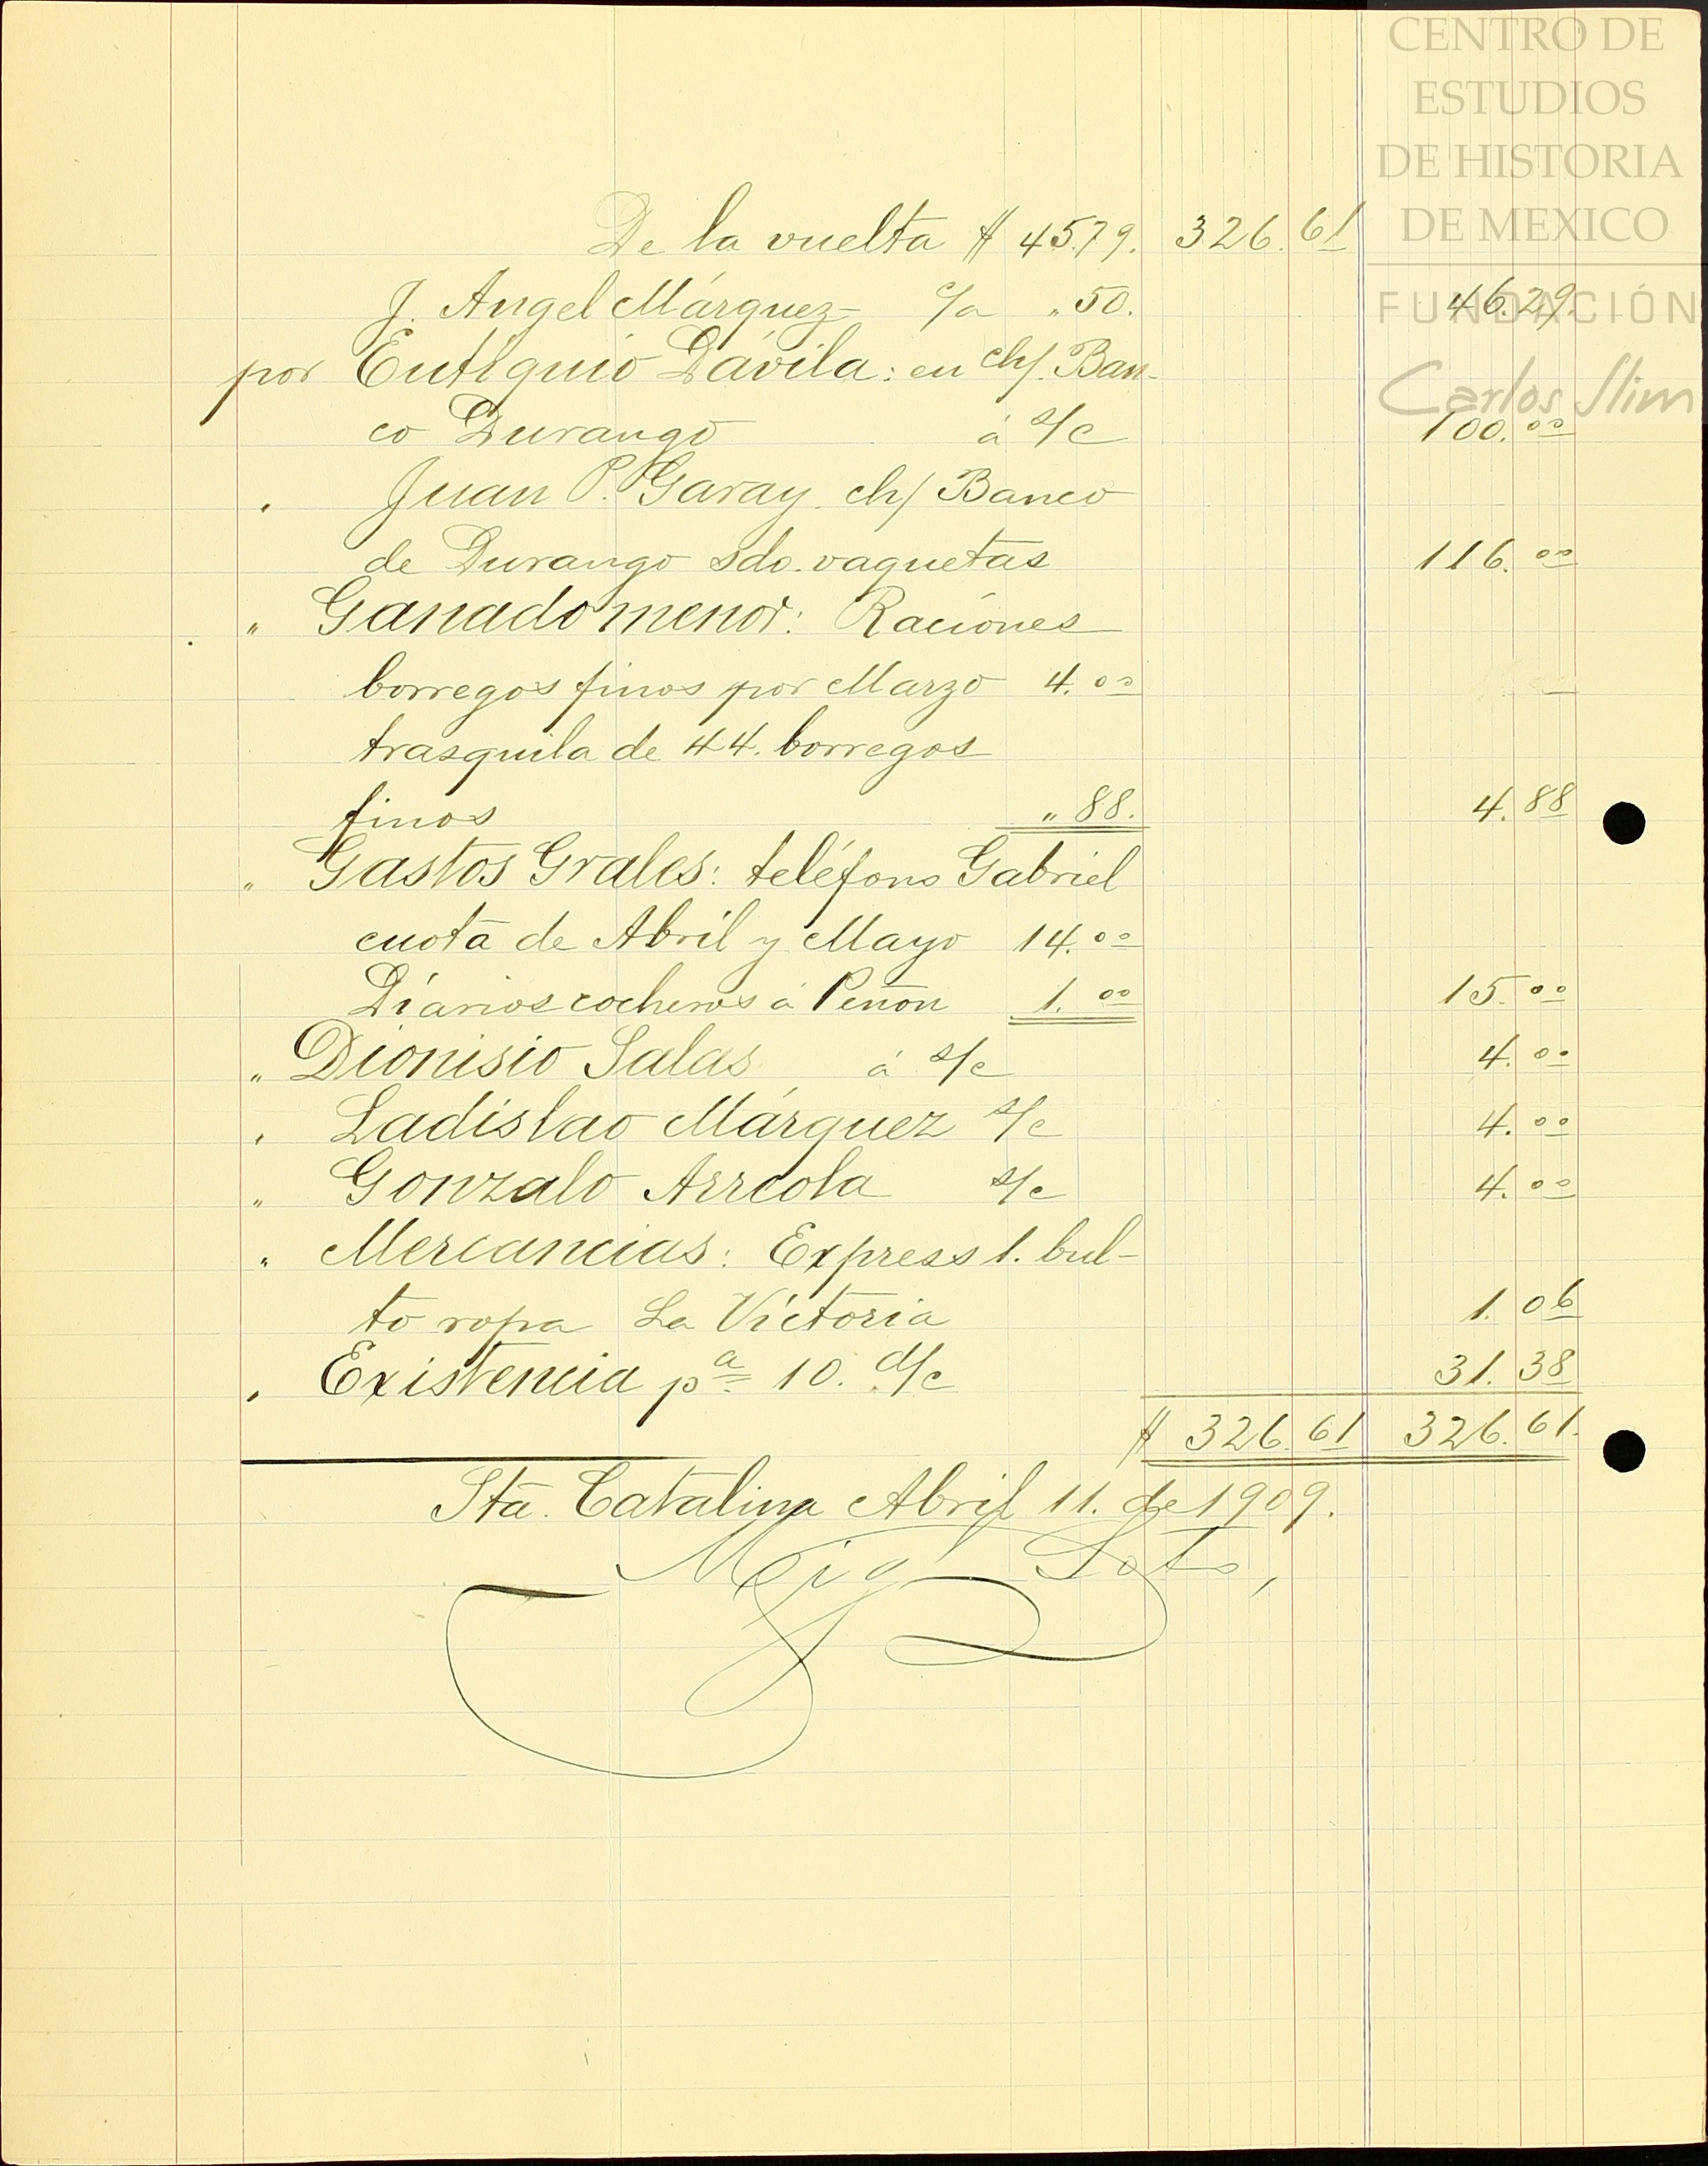 CENTRO DE
ESTUDIOS
DE HISTORIA
DE MEXICO
FUNDACIÓN
Carlos Slim
De la vuelta $ 45.79. 326.61
J. Angel Márquez c/a „50. 46.29.
por Eutiquio Dávila: en ch/. Ban-
co Durango á s/c 100.00
„ Juan P. Garay ch/ Banco
de Durango sdo. vaquetas 116.00
„ Ganado menor: Raciones
borregos finos por Marzo 4.00
trasquila de 44. borregos
finos „ 88. 4.88
„ Gastos Grales: teléfono Gabriel
cuota de Abril y Mayo 14.00
Diarios cocheros á Peñon 1.00 15.00
„ Dionisio Salas á s/c 4.00
„ Ladislao Márquez s/c 4.00
„ Gonzalo Arreola s/c 4.00
„ Mercancias: Express 1. bul-
to ropa La Victoria 1.06
„ Existencia pa 10. d/c 31.38
$ 326.61 326.61.
Sta. Catalina Abril 11. de 1909.
Mig Soto,